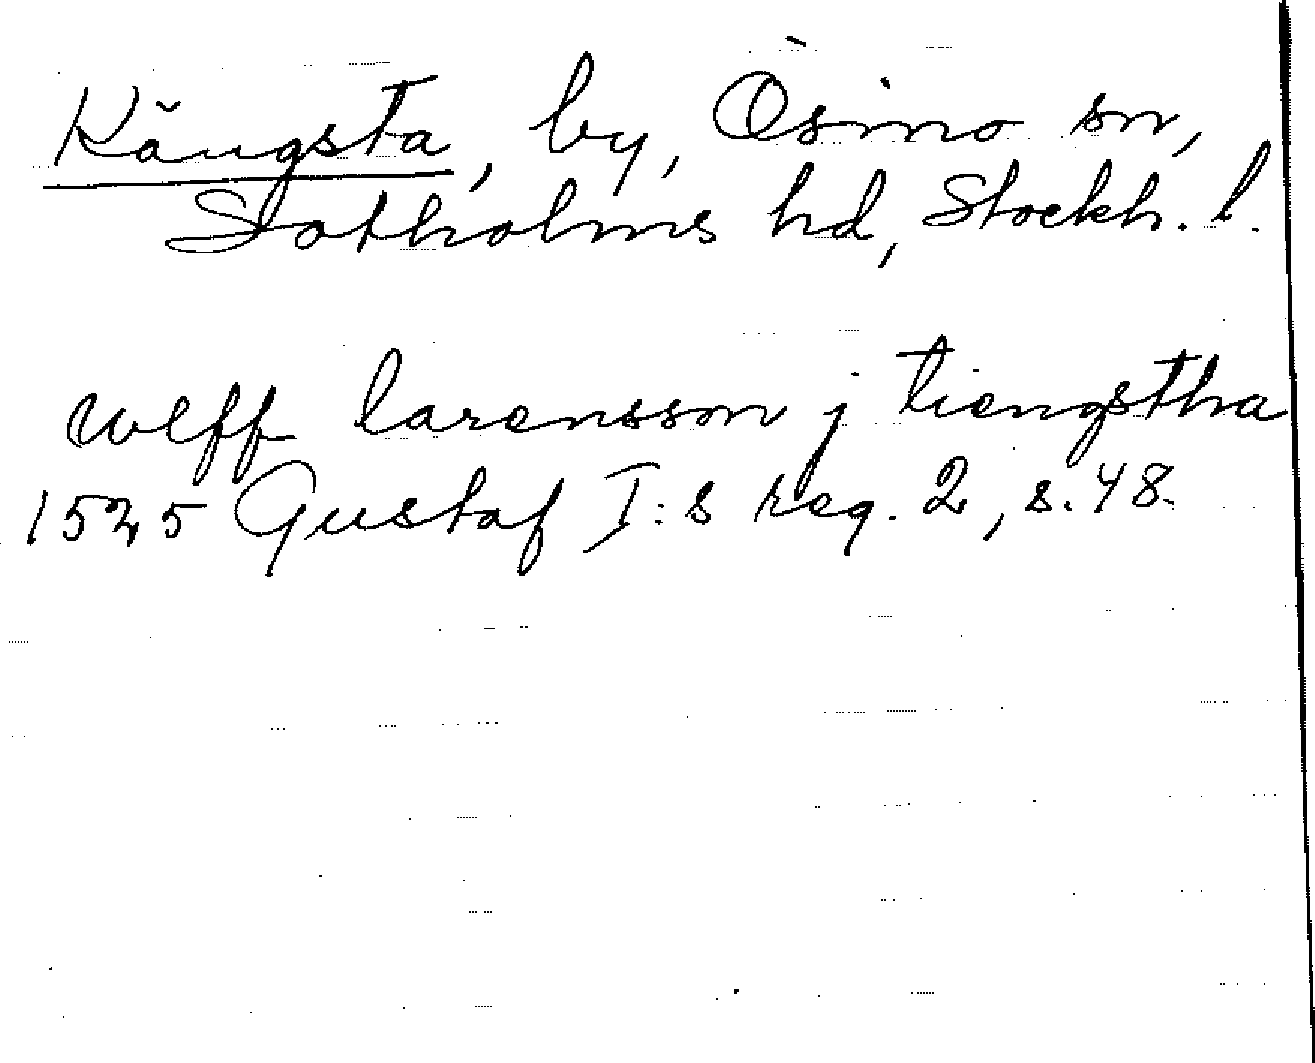 Kängsta, by, Ösmo sn,
Sotholms hd, Stockh. l.
Wlff larensson j tiengstha
1525 Gustaf I:s reg. 2, s. 48.